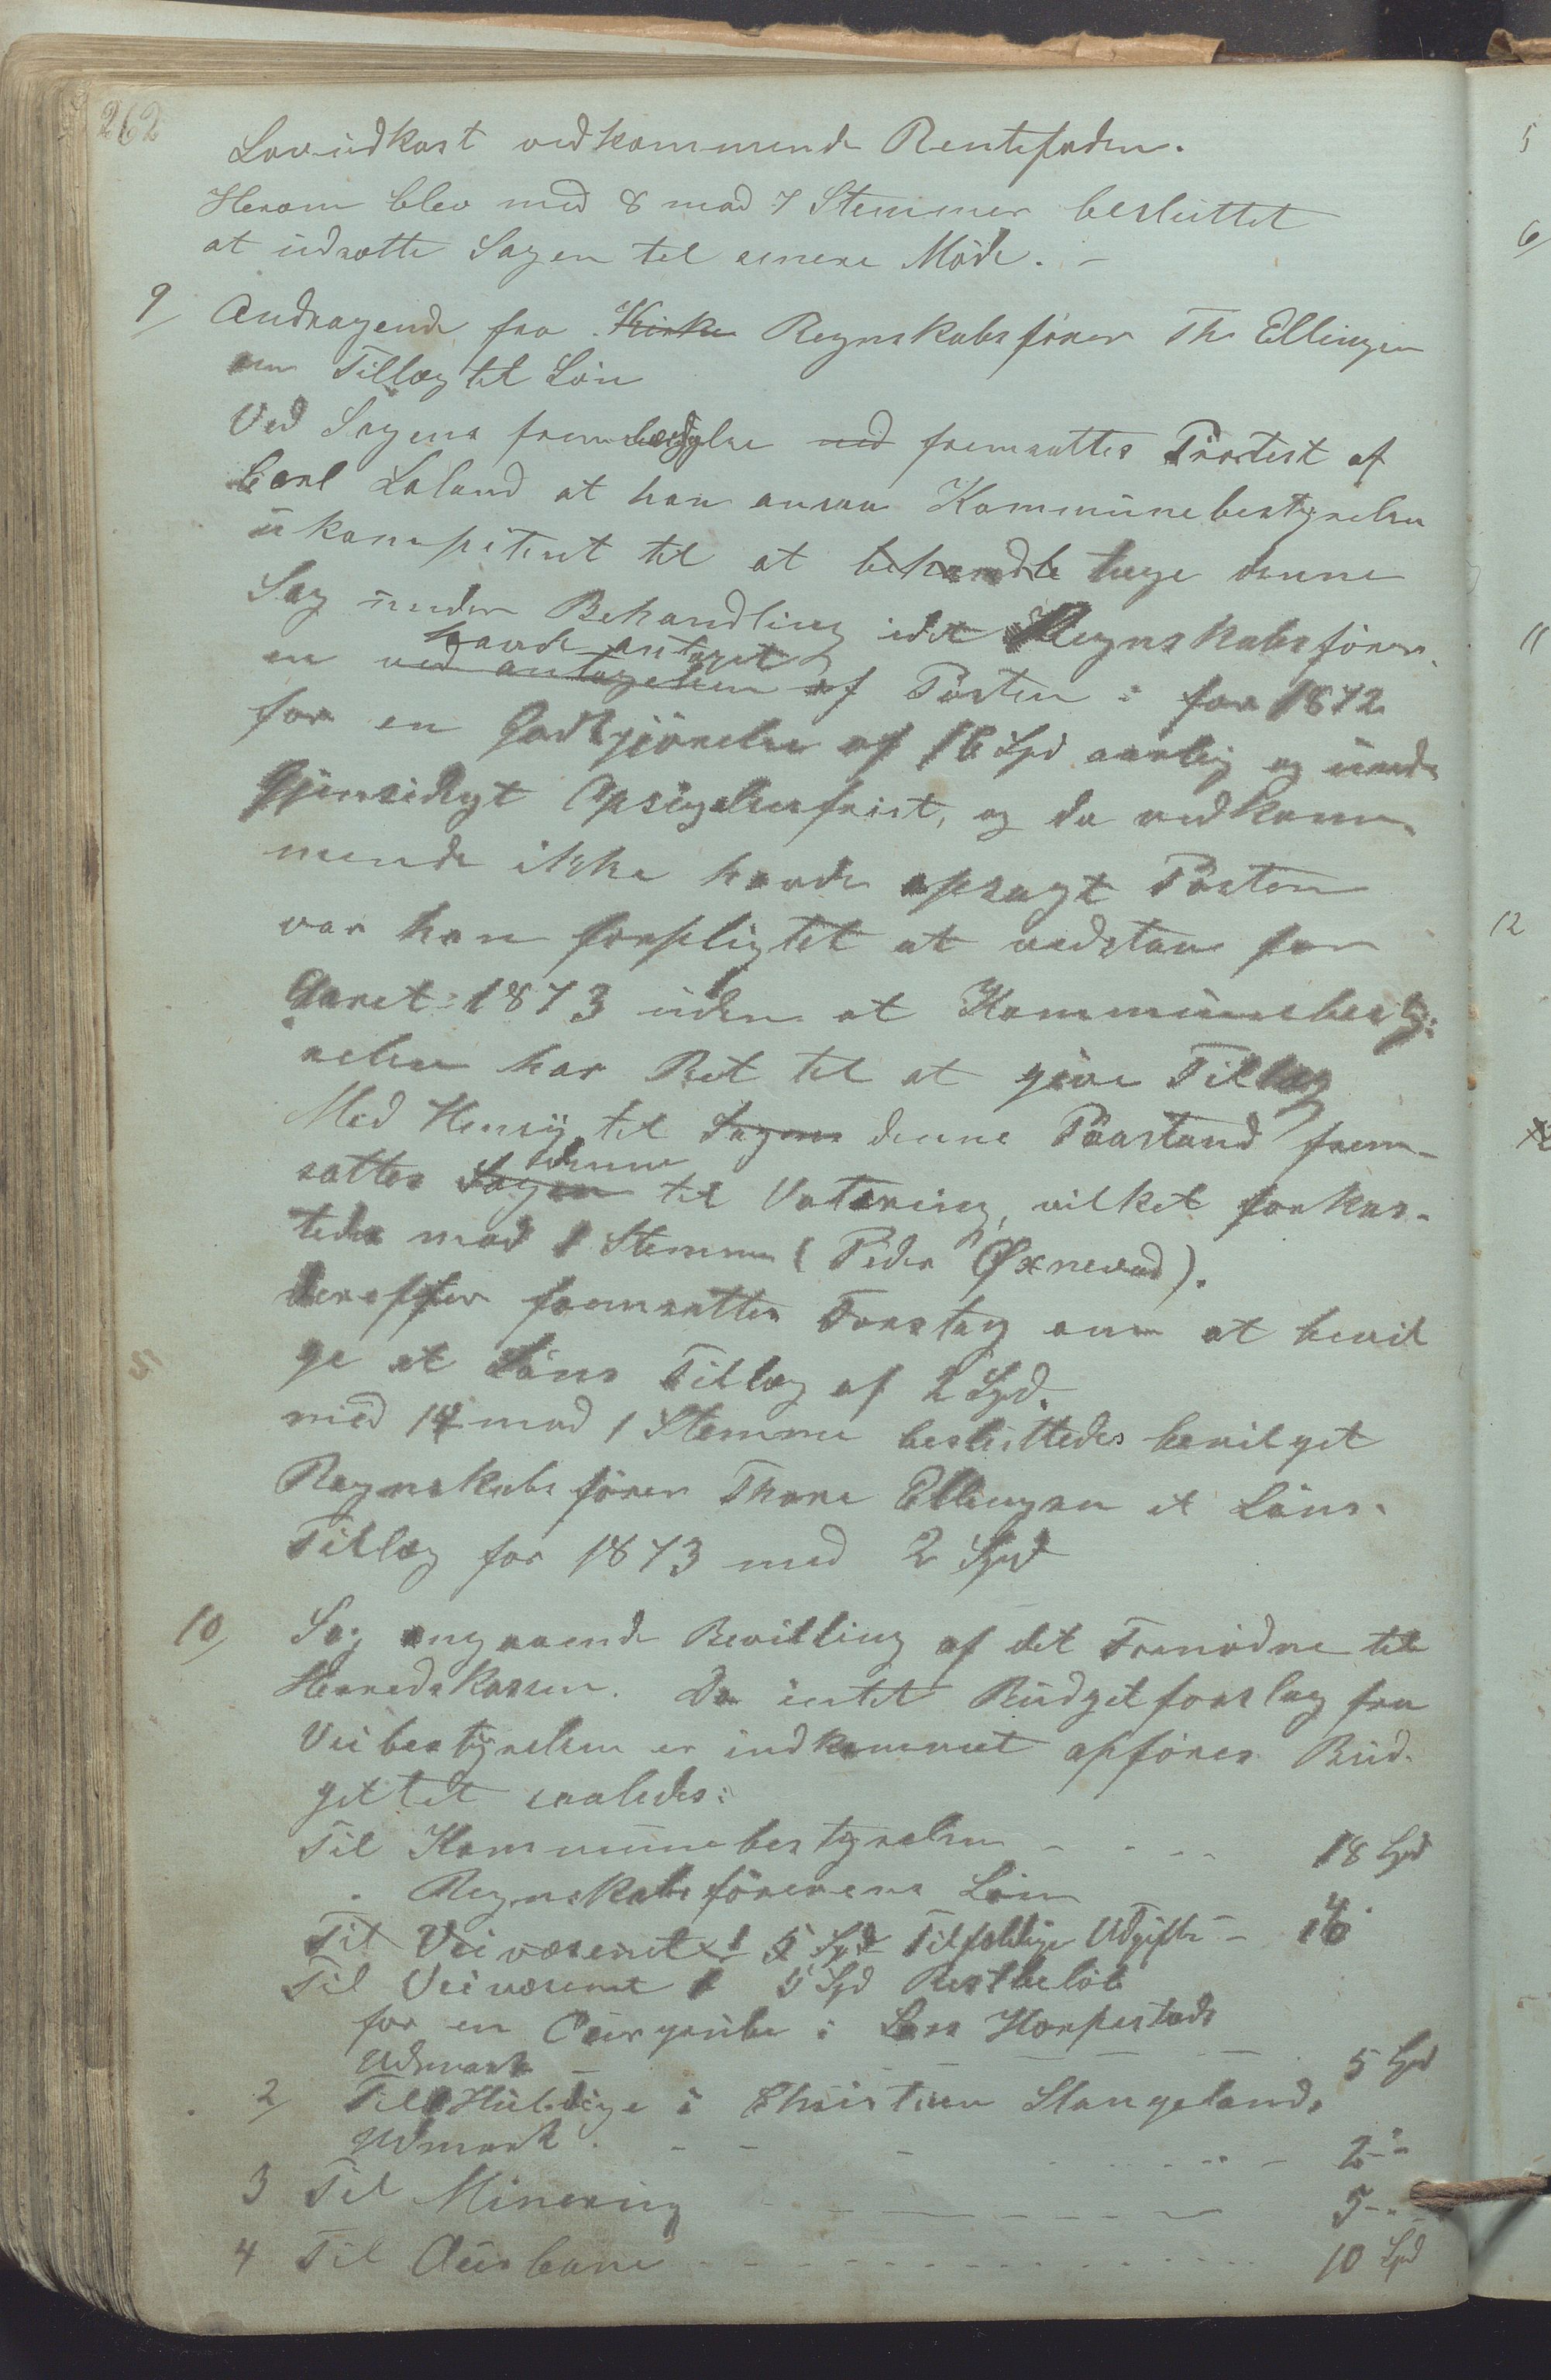 262
Lovudkast vedkommende Rentefoden.
Herom blev med 8 mod 7 Stemmer besluttet
at udsætte Sagen til senere Møde. -
9/ Andragende fra Kirke Regnskabsfører Th Ellingsen
om Tillæg til Løn
Ved Sagens fremlæggelse ved fremsattes Protest af
Carl Laland at han ansaa Kommunebestyrelsen
ukompetent til at behandle tage denne
Sag under Behandling idet Regnskabsfører-
havde antaget
en ved antagelsen af Posten i for 1872
for en Godtgjörelse af 16 Spd aarlig og under
Gjensidigt Opsigelsesfrist, og da vedkom-
mende ikke havde opsagt Posten
var han forpligtet at vedstaa for
Aaret 1873 uden at Kommunebesty:
relsen har Ret til at give Tillæg
Med Hensyn til Sagen denne Paastand frem-
denne
sattes Sagen til Votering, vilket forkas-
tedes mod 1 Stemme (Peder Øxnevad).
derefter fremsattes Forslag om at bevil
ge et Løns Tillæg af 2 Spd.
med 14 mod 1 Stemme besluttedes bevilget
Regnskabsfører Thore Ellingsen et Løns-
Tillæg for 1873 med 2 Spd
10/ Sag angaaende Bevilling af det Fornødne til
Herredskassen. Da intet Budgetforslag fra
Veibestyrelsen er indkommet opføres Bud-
gettet saaledes:
Til Kommunebestyrelsen - - - - 18 Spd
" Regnskabsførerens Løn
Til Veivæsenet 1 5 Spd Tilfældige Udgifter - 14
Til Veivæsenet 1 5 Spd Restbeløb
for en i Lars Horpestads
Udmark - - - - 5 Spd
2/ Til i Christian Stangelands
Udmark - - - - 2 - "
3 Til Minering - - - - 5 - "
4 Til - - - - 10 Spd
5
6/
11
12